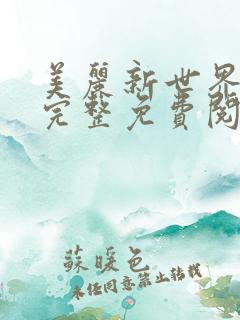 美麗新世界
完整免費閱
蘇暖色
未經同意禁止轉載